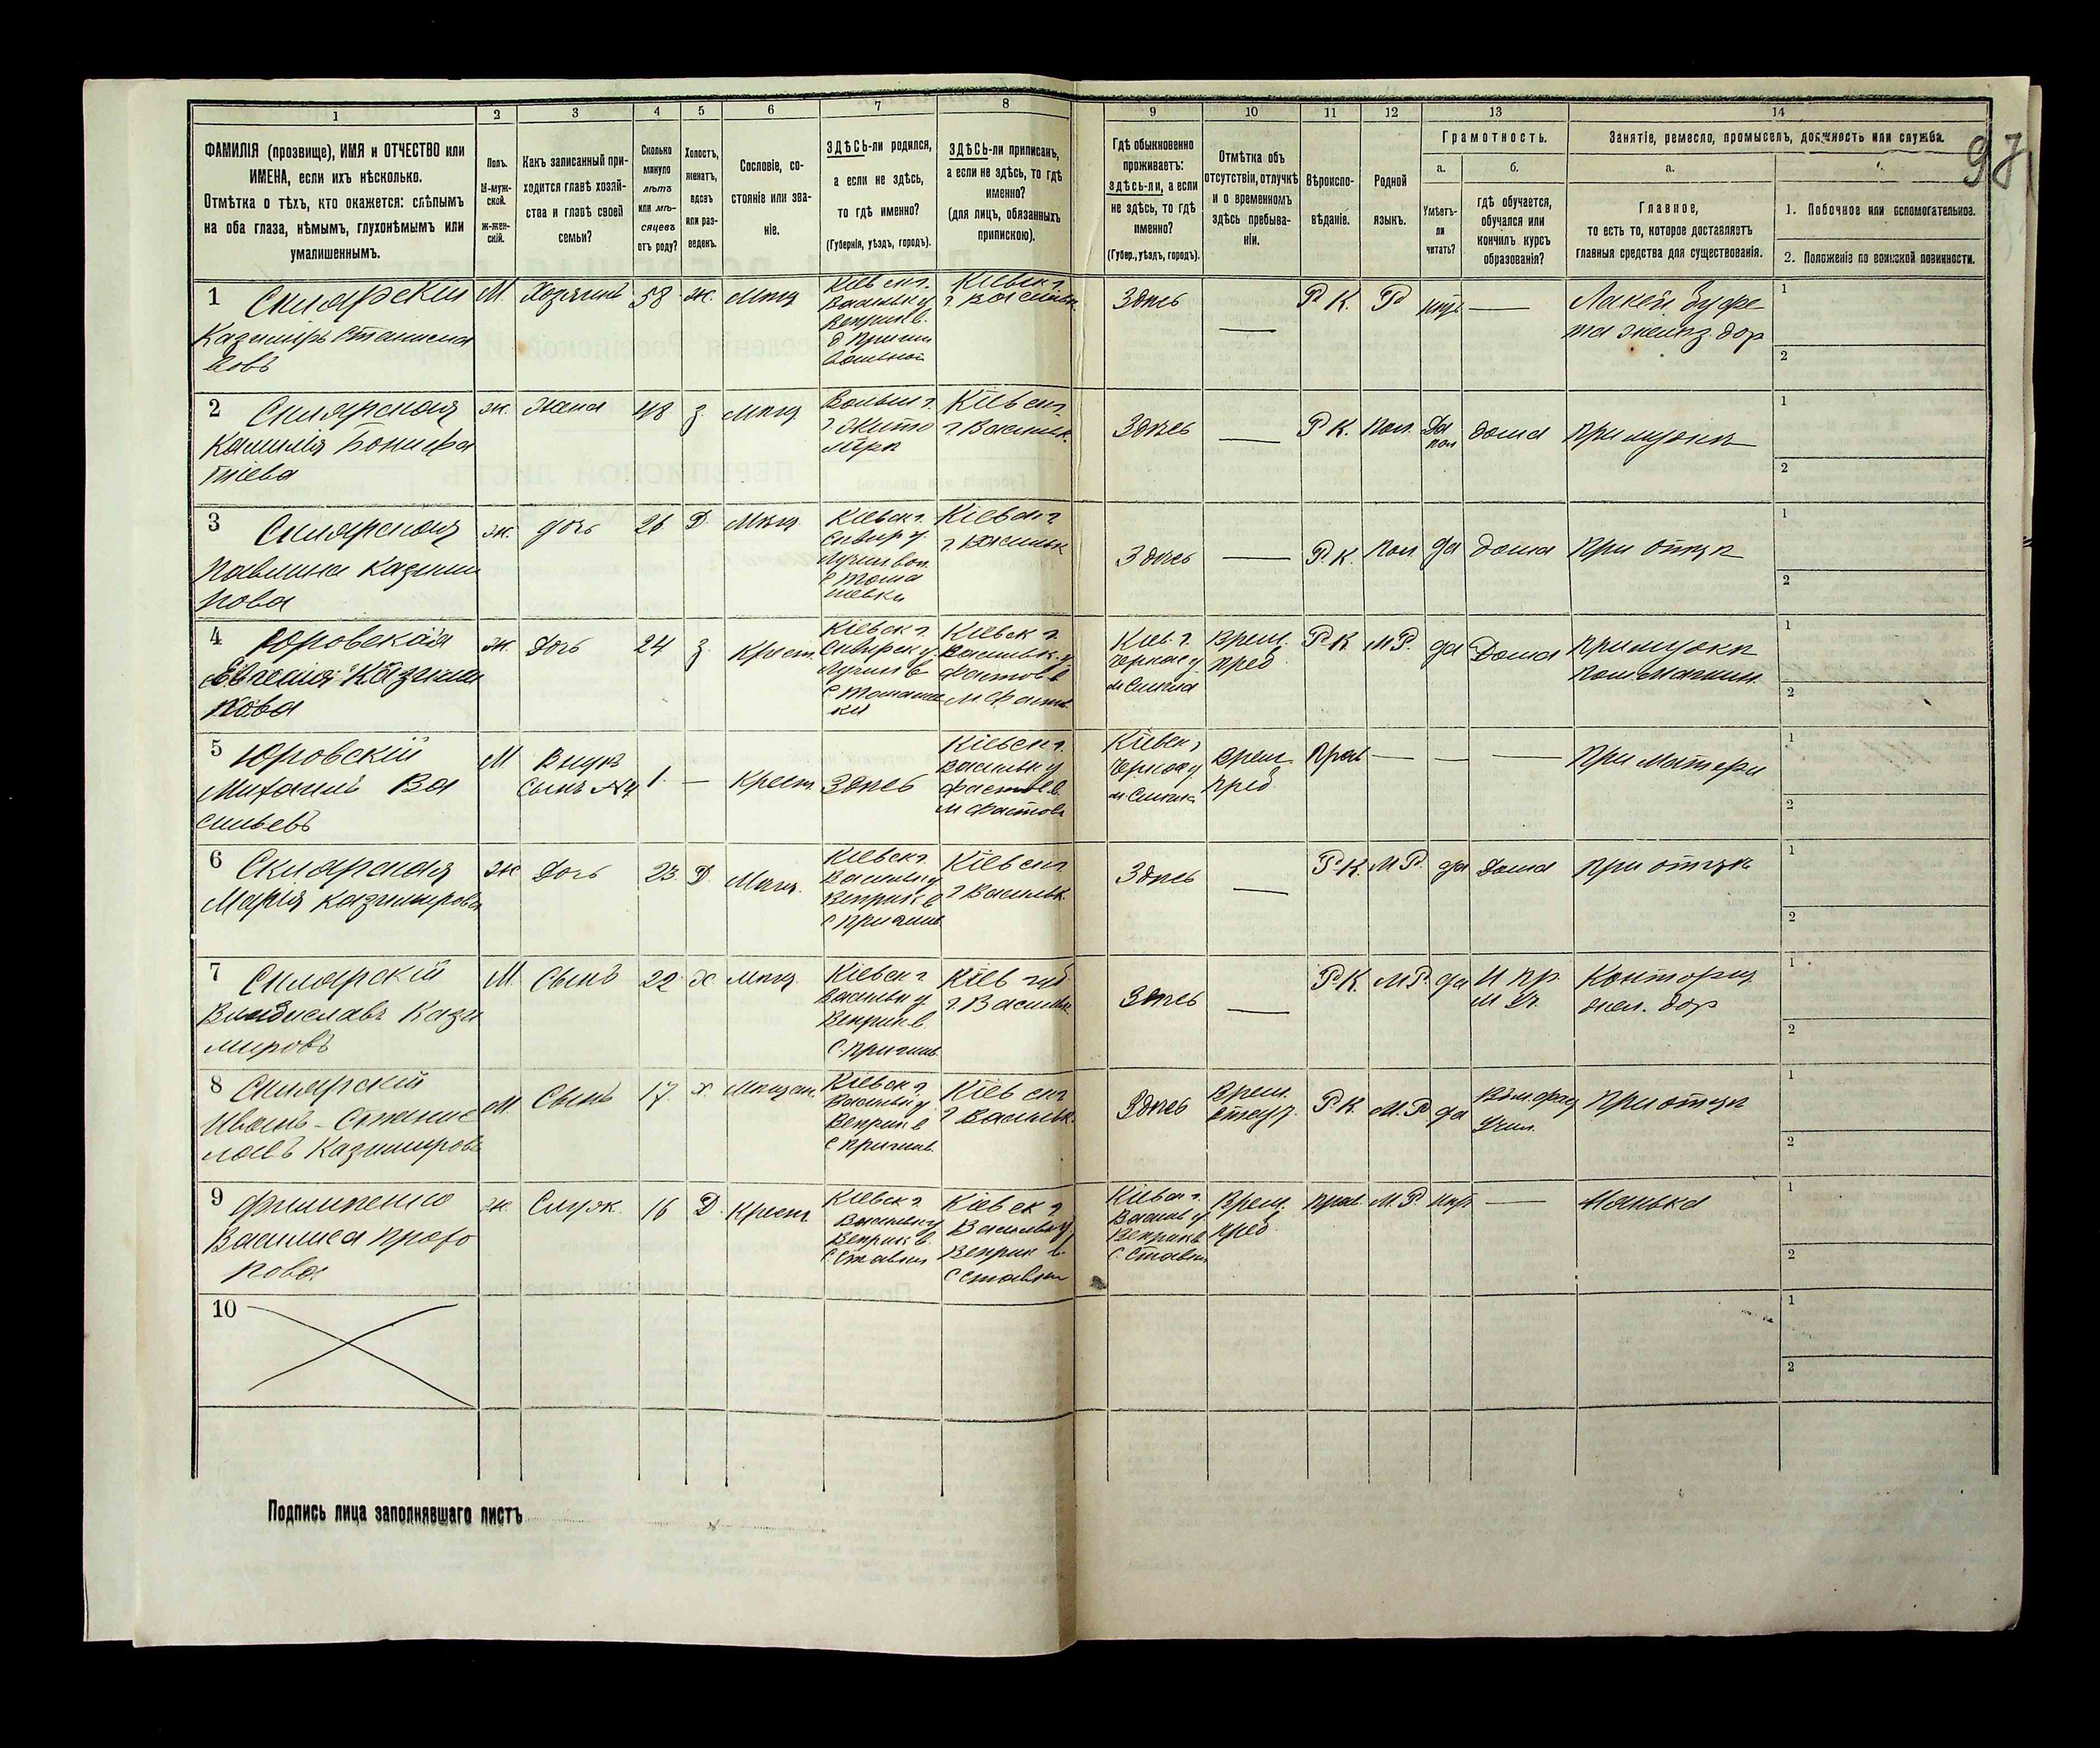 1 2 3 4 5 6 7 8 9 10 11 12 13 14
ФАМИЛІЯ (прозвище), ИМЯ и ОТЧЕСТВО или
ИМЕНА, если ихъ нѣсколько.
Отмѣтка о тѣхъ, кто окажется: слѣпымъ
на оба глаза, нѣмымъ, глухонѣмымъ или
умалишеннымъ.
Полъ.
М-муж-
ской.
Ж-жен-
скій.
Какъ записанный при-
ходится главѣ хозяй-
ства и главѣ своей
семьи?
Сколько
минуло
лѣтъ
или мѣ-
сяцевъ
отъ роду?
Холостъ,
женатъ,
вдовъ
или раз-
веденъ.
Сословіе, со-
стояніе или зва-
ніе.
ЗДѢСЬ-ли родился,
а если не здѣсь,
то гдѣ именно?
(Губернія, уѣздъ, городъ).
ЗДѢСЬ-ли приписанъ,
а если не здѣсь, то гдѣ
именно?
(для лицъ, обязанныхъ
припискою).
Гдѣ обыкновенно
проживаетъ:
здѣсь-ли, а если
не здѣсь, то гдѣ
именно?
(Губер., уѣздъ, городъ).
Отмѣтка объ
отсутствіи, отлучкѣ
и о временномъ
здѣсь пребыва-
ніи.
Вѣроиспо-
вѣданіе.
Родной
языкъ.
Грамотность.
а.
Умѣетъ-
ли
читать?
б.
гдѣ обучается,
обучался или
кончилъ курсъ
образованія?
Занятіе, ремесло, промыселъ, должность или служба.
а.
Главное,
то есть то, которое доставляетъ
главныя средства для существованія.
1. Побочное или вспомогательное.
2. Положеніе по воинской повинности.
1 Склярскій
Казимиръ Станисла
вовъ
М. Хозяинъ 58 ж. Мѣщ
Кіевск г.
Васильк у
Веприк в.
Кіевск г.
г Васильк.
Здѣсь — Р. К. Р нѣтъ —
Лакей буфе-
та желѣз. дор
1
2
2 Склярская
Камилія Бонифа
тіева
ж. Жена 48 з. Мѣщ
Волын г.
г Жито
мірѣ
Кіевск г.
г Васильк.
Здѣсь — Р К. Пол. Да
пол
дома при мужѣ
1
2
3 Склярская
Павлина Казими
рова
ж. дочь 26 Д. Мѣщ.
Кіевск г.
Сквир у.
Кіевск г
г. Васильк
Здѣсь — Р. К. Пол да дома при отцѣ
1
2
4 Юровская
Казими
рова
ж. Дочь 24 з. Крест.
Кіевск г.
Сквирск у.
Кіевск г.
Васильк. у
Фастов в
м. Фастов
Кіев. г.
Черкас у
м Смѣла
Врем.
преб
Р К М Р. да Дома
при мужѣ
1
2
5 Юровскій
Михаилъ Ва
сильевъ
М Внукъ
Сынъ №4
1. — Крест. Здѣсь
Кіевск г.
Васильк у
Фастов в.
м Фастов
Кіевск г
Черкас у
м Смѣла
Врем
преб.
Прав — — — при матери
1
2
6 Склярская
Марія Казимирова
ж Дочь 23. Д. Мѣщ.
Кіевск г.
Васильк у
Веприк в
Кіевск г.
г Васильк.
Здѣсь — Р. К. М Р. да Дома при отцѣ
1
2
7 Склярскій
Владиславъ Кази
мировъ
М. Сынъ 22. х. Мѣщ.
Кіевск г
Васильк у
Веприк в
Кіев губ
г. Васильк.
Здѣсь — Р К. М Р. да
Конторщ.
жел. дор
1
2
8 Склярскій
Иванъ-Станис
лавъ Казимировъ
М. Сынъ 17 х. Мѣщан.
Кіевск г
Васильк у
Веприк в
Кіевск г
г Васильк.
Здѣсь Врем.
Р. К. М. Р да
Учил.
при отцѣ
1
2
9 Филипенко
Василиса Прохо
рова
ж. Служ. 16 Д. Крест.
Кіевск г
Васильк у
Веприк в.
с. Ставки
Кіевск г
Васильк у
Веприк в.
с Ставки
Кіевск г.
Васильк у
Веприк в
с. Ставки
Врем.
преб.
прав. М. Р. нѣт — Нянька
1
2
10
1
2
Подпись лица заполнявшаго листъ